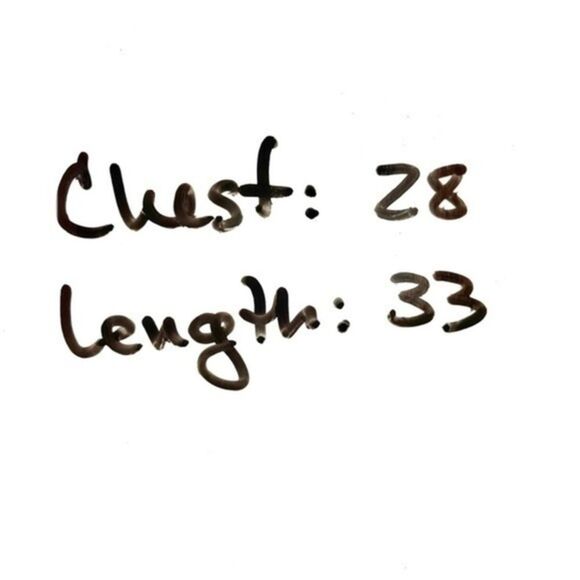 Chest: 28
Length: 33